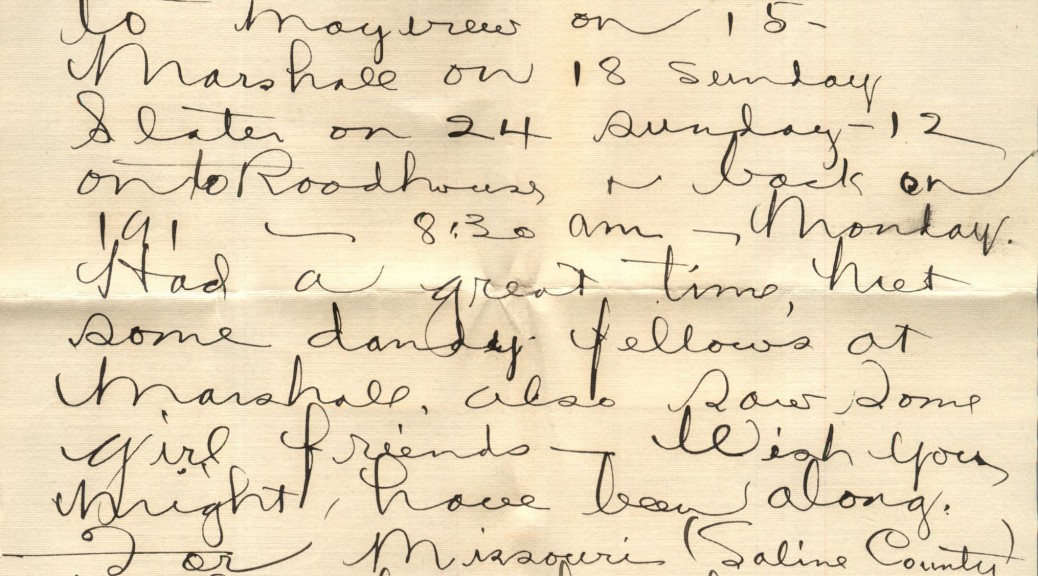 to Mayview on 15-
Marshall on 18 Sunday
Slater on 24 Sunday-12
onto Roodhouse & back on
191 — 8:30 am — Monday.
Had a great time, Met
some dandy fellows at
Marshall, also saw some
girl friends — Wish you
might have been along.
For Missouri (Saline County)